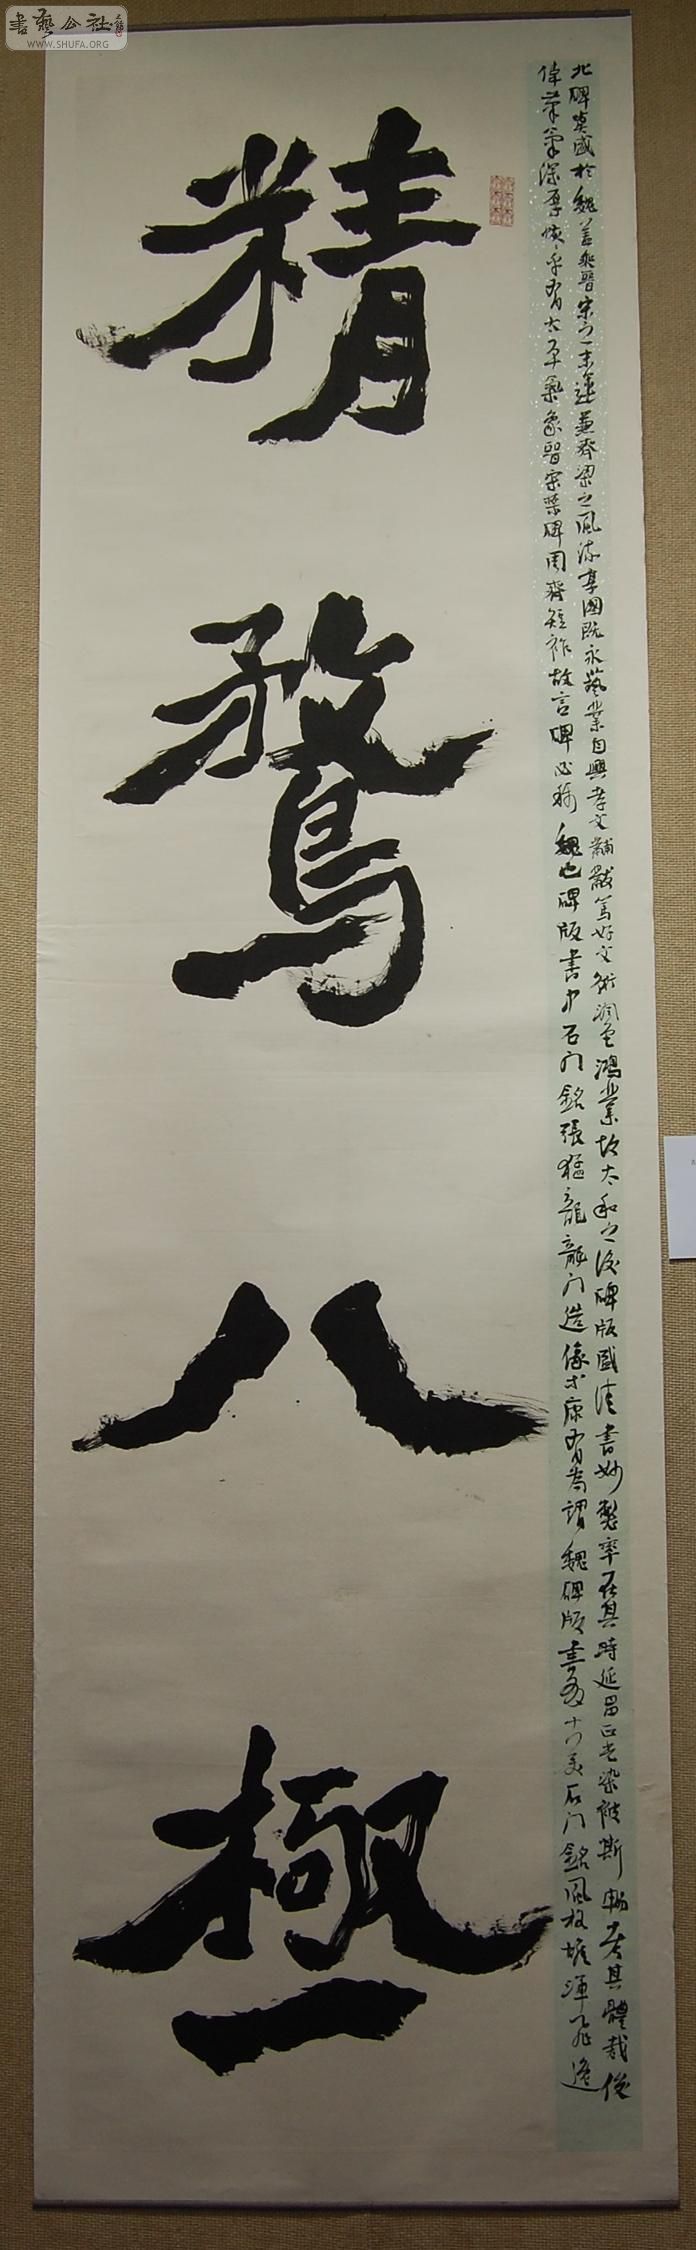 書藝公社
WWW.SHUFA.ORG
精鶩八極
北碑莫盛於魏蓋乘晉宋之末運兼齊梁之風流享國既永藝業自興孝文黼黻篤好文術潤色鴻業故太和之後碑版盛佳書妙製率在其時延昌正光染被斯暢考其體裁俊
偉筆氣深厚恢恢乎有太平氣象晉宋禁碑周齊短祚故言碑必稱魏也碑版書中石門銘張猛龍龍門造像康有為謂魏碑版書有十美石門銘風格雄渾飛逸